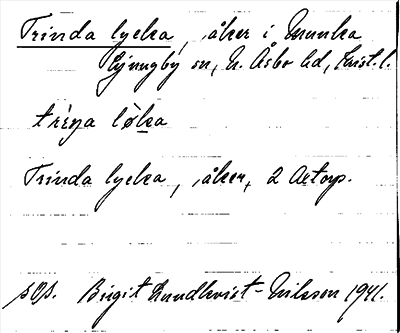 Trinda lycka, åker i Munka
Ljungby sn, N. Åsbo hd, Krist. l.
tréna løka
Trinda lycka, åker, 2 Aetorp.
sOs. Birgit Lundkvist-Nilsson 1941.